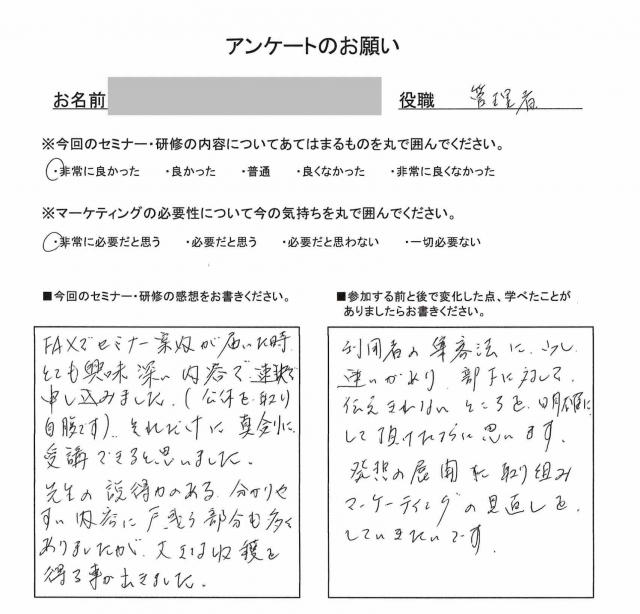 アンケートのお願い
お名前 役職 管理者
※今回のセミナー・研修の内容についてあてはまるものを丸で囲んでください。
・非常に良かった ・良かった ・普通 ・良くなかった ・非常に良くなかった
※マーケティングの必要性について今の気持ちを丸で囲んでください。
・非常に必要だと思う ・必要だと思う ・必要だと思わない ・一切必要ない
■今回のセミナー・研修の感想をお書きください。
FAXでセミナー案内が届いた時、
とても興味深い内容で速攻で
申し込みました。(公休を取り
自腹です)。それだけに真剣に
受講できると思いました。
先生の説得力のある、分かりや
すい内容に戸惑う部分も多く
ありましたが、大きな収穫を
得る事が出きました。
■参加する前と後で変化した点、学べたことが
ありましたらお書きください。
利用者の集客法に、少し
迷いがあり、部下に対して、
伝えきれないところを、明確に
して頂けたように思います。
発想の展開に取り組み
マーケーティングの見直しを
していきたいです。